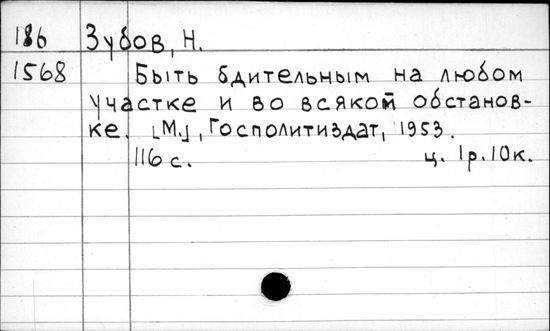 186 Зубов, Н.
1568 Быть бдительным на любом
участке и во всякой обстанов-
ке. [М.], Госполитиздат, 1953.
116 с. ц. 1р.10к.